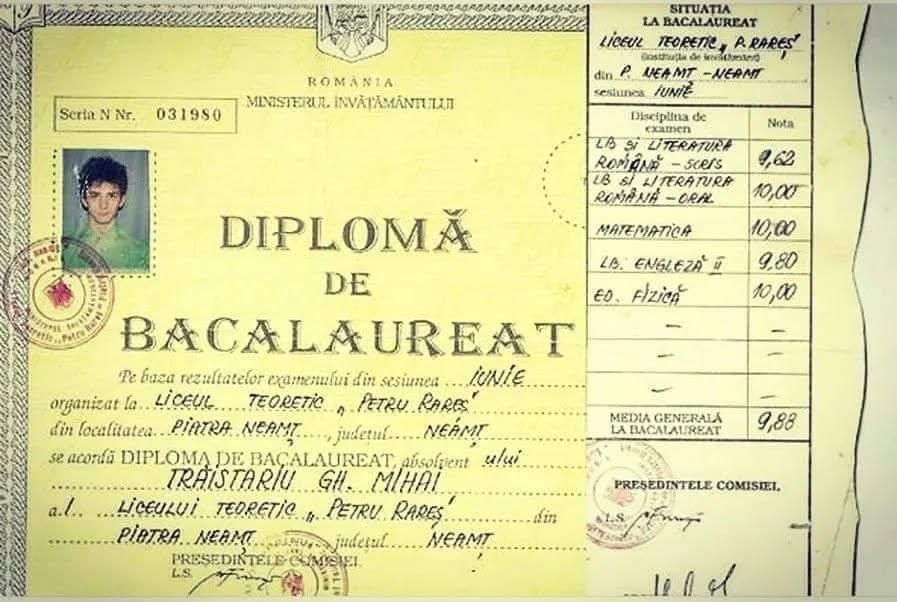 ROMÂNIA
MINISTERUL ÎNVĂȚĂMÂNTULUI
Seria N Nr. 031980
DIPLOMĂ
DE
BACALAUREAT
Pe baza rezultatelor examenului din sesiunea IUNIE
organizat la LICEUL TEORETIC „PETRU RAREȘ"
din localitatea PIATRA NEAMȚ, județul NEAMȚ
se acordă DIPLOMA DE BACALAUREAT, absolvent ului
TRĂISTARIU GH. MIHAI
al LICEULUI TEORETIC „PETRU RAREȘ" din
PIATRA NEAMȚ județul NEAMȚ
PREȘEDINTELE COMISIEI,
L.S.
SITUAȚIA
LA BACALAUREAT
LICEUL TEORETIC „P. RAREȘ"
(instituția de învățământ)
din P. NEAMȚ - NEAMȚ
sesiunea IUNIE
Disciplina de examen Nota
LB ȘI LITERATURA
ROMÂNĂ - SCRIS 9,62
LB ȘI LITERATURA
ROMÂNĂ - ORAL 10,00
MATEMATICA 10,00
LB. ENGLEZĂ II 9,80
ED. FIZICĂ 10,00
— —
— —
— —
MEDIA GENERALĂ
LA BACALAUREAT 9,88
PREȘEDINTELE COMISIEI,
L.S.